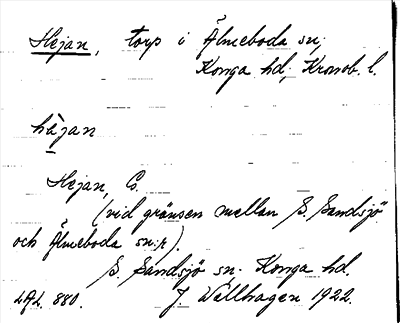 Hejan, torp i Älmeboda sn,
Konga hd, Kronob. l.
hàjan
Hejan, G.
(vid gränsen mellan S. Sandsjö
och Älmeboda sn:r).
S. Sandsjö sn. Konga hd.
LAL. 880. J. Wallhagen 1922.